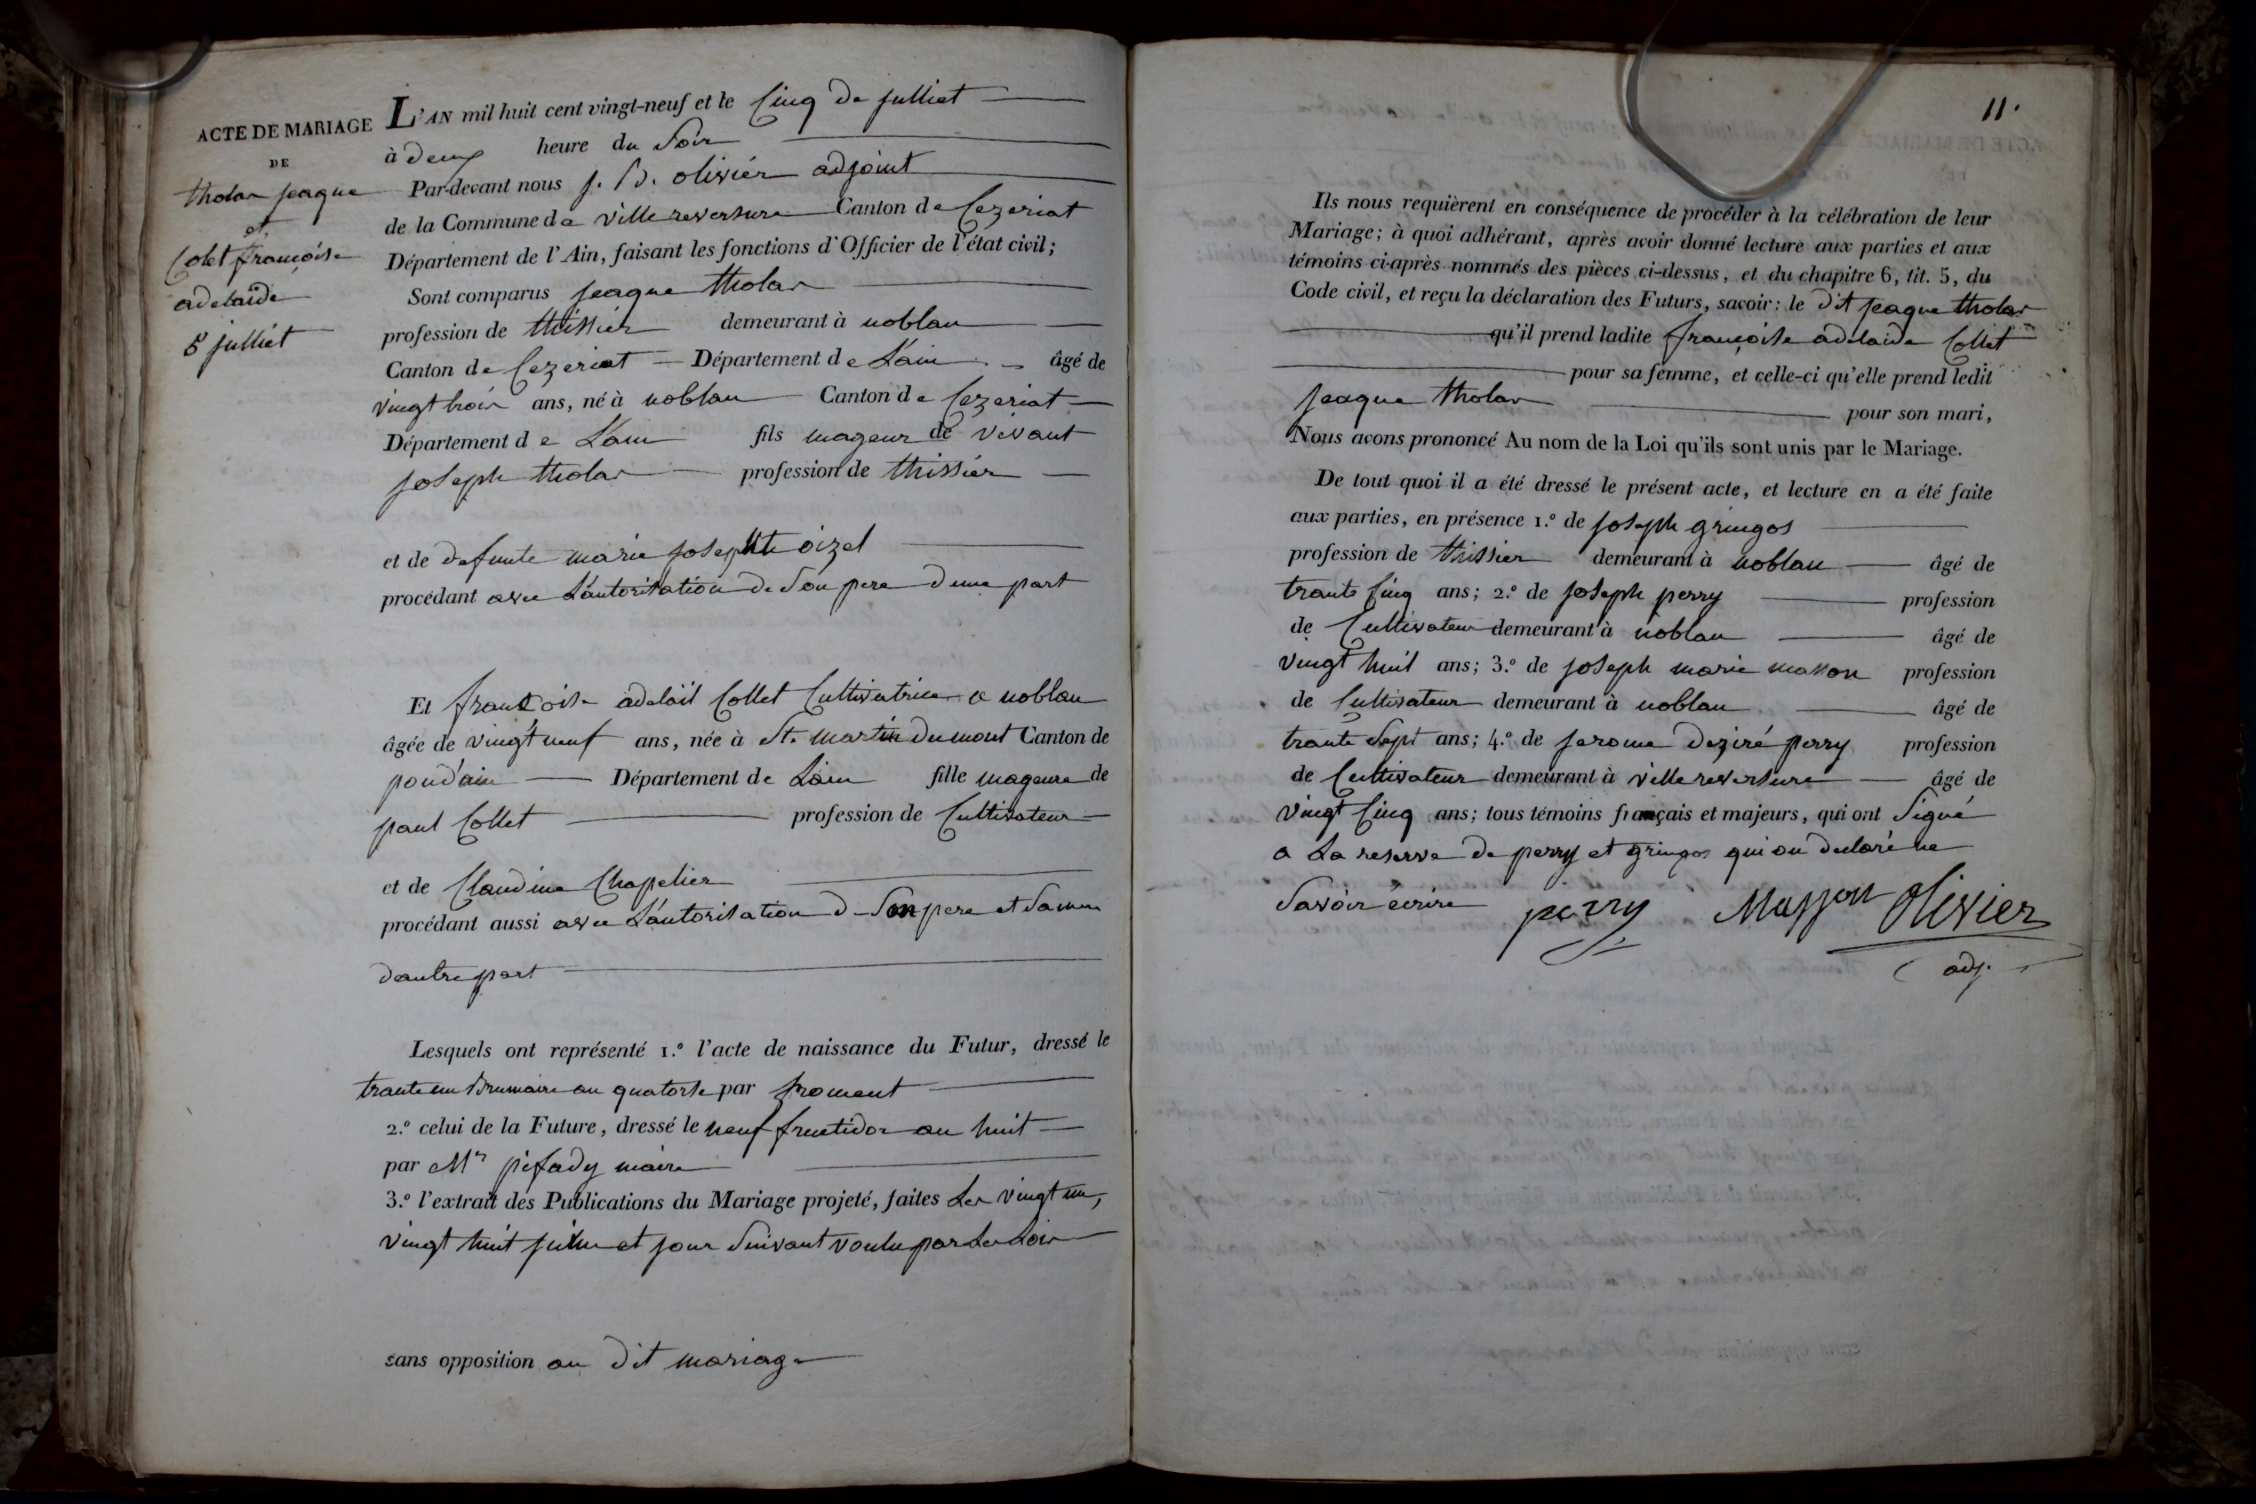 ACTE DE MARIAGE
DE
tholar jeaque
et
Colet françoise
adelaide
5 julliet
L'AN mil huit cent vingt-neuf et le Cinq de julliet
à deux heure du Soir
Par-devant nous j. B. olivier adjoint
de la Commune de villereversure Canton de Cezeriat
Département de l'Ain, faisant les fonctions d'Officier de l'état civil;
Sont comparus jeaque tholar
profession de thissier demeurant à noblan
Canton de Cezeriat Département de L'ain âgé de
vingt trois ans, né à noblan Canton de Cezeriat
Département de L'ain fils mageur de vivant
joseph tholar profession de thissier
et de defunte marie josephte oizel
procédant avec L'autorisation de Son pere d'une part
Et francoise adelaïl Collet Cultivatrice a noblan
âgée de vingt neuf ans, née à St. martin dumont Canton de
pond'ain Département de L'ain fille mageure de
paul Collet profession de Cultivateur
et de Claudine Chapelier
procédant aussi avec L'autorisation de Son pere et Samere
d'autre part
Lesquels ont représenté 1.º l'acte de naissance du Futur, dressé le
trante un Brumaire an quatorse par froment
2.º celui de la Future, dressé le neuf fructidor an huit
par Mr pifady maire
3.º l'extrait des Publications du Mariage projeté, faites Les vingt un,
vingt huit juin et jour Suivant voulu par La Lois
sans opposition au dit mariage
11.
Ils nous requièrent en conséquence de procéder à la célébration de leur
Mariage; à quoi adhérant, après avoir donné lecture aux parties et aux
témoins ci-après nommés des pièces ci-dessus, et du chapitre 6, tit. 5, du
Code civil, et reçu la déclaration des Futurs, savoir: le dit jeaque tholar
qu'il prend ladite françoise adelaide Collet
pour sa femme, et celle-ci qu'elle prend ledit
jeaque tholar pour son mari,
Nous avons prononcé Au nom de la Loi qu'ils sont unis par le Mariage.
De tout quoi il a été dressé le présent acte, et lecture en a été faite
aux parties, en présence 1.º de joseph gringos
profession de thissier demeurant à noblan âgé de
trante Cinq ans; 2.º de joseph perry profession
de Cultivateur demeurant à noblan âgé de
vingt huit ans; 3.º de joseph marie masson profession
de Cultivateur demeurant à noblan âgé de
trante Sept ans; 4.º de jerome deziré perry profession
de Cultivateur demeurant à villereversure âgé de
vingt Cinq ans; tous témoins français et majeurs, qui ont Signé
a La reserve de perry et gringos qui on declaré ne
Savoir écrire perry Masson Olivier
adj.